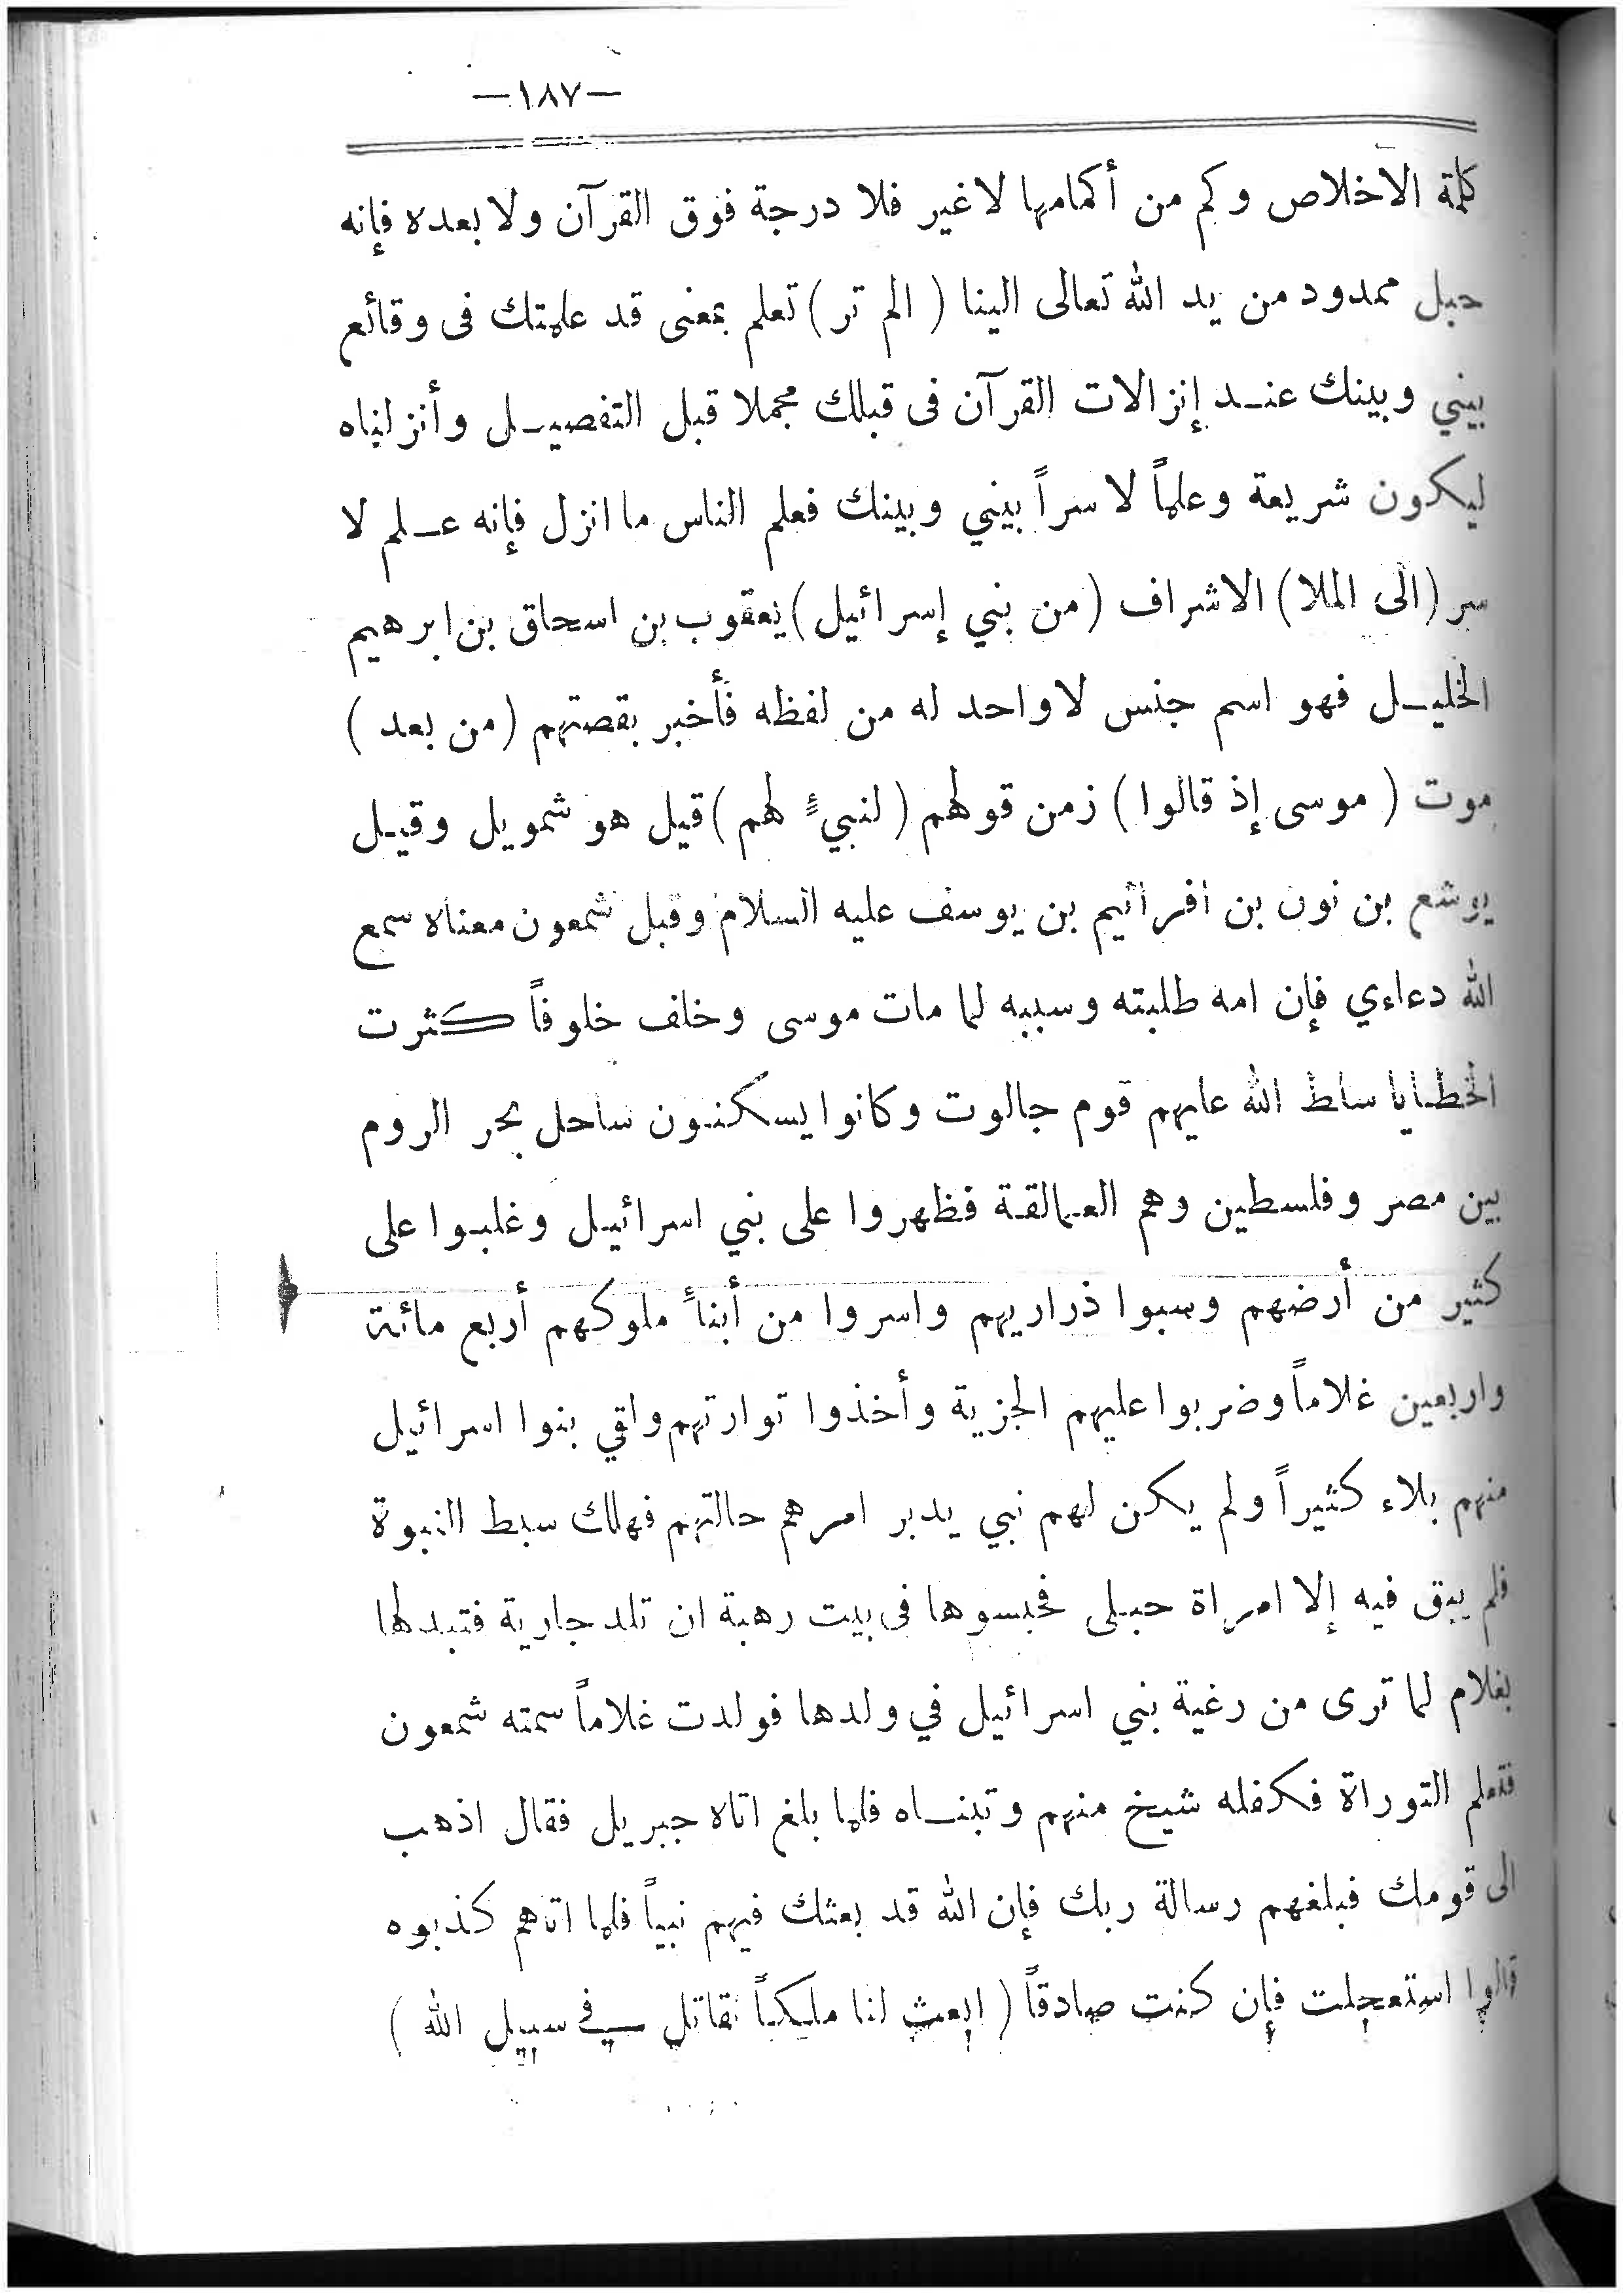 —١٨٧—
كلمة الاخلاص وكم من أكمامها لا غير فلا درجة فوق القرآن ولا بعده فإنه
حبل ممدود من يد الله تعالى الينا ( الم تر ) تعلم بمعنى قد علمتك فى وقائع
بيني وبينك عنـــد إنزالات القرآن فى قبلك مجملا قبل التفصيـــل وأنزلناه
ليكون شريعة وعلماً لا سراً بيني وبينك فعلم الناس ما انزل فإنه عـــلم لا
سر (الى الملا) الاشراف (من بني إسرائيل) يعقوب بن اسحاق بن ابرهيم
الخليـــل فهو اسم جنس لا واحد له من لفظه فأخبر بقصتهم (من بعد )
موت ( موسى إذ قالوا ) زمن قولهم ( لنبيءٍ لهم ) قيل هو شمويل وقيـل
يوشع بن نون بن افرائيم بن يوسف عليه السلام وقبل شمعون معناه سمع
الله دعاءي فإن امه طلبته وسببه لما مات موسى وخلف خلوفاً كثرت
الخطايا سلط الله عليهم قوم جالوت وكانوا يسكنون ساحل بحر الروم
بين مصر وفلسطين وهم العمالقة فظهروا على بني اسرائيـل وغلبـوا على
كثير من أرضهم وسبوا ذراريهم واسروا من أبنأ ملوكهم أربع مائة
واربعين غلاماً وضربوا عليهم الجزية وأخذوا توارتهم واقي بنوا اسرائيل
منهم بلاء كثيراً ولم يكن لهم نبي يدبر امرهم حالتهم فهلك سبط النبوة
فلم يبق فيه إلا امراة حبـلى فحبسوها فى بيت رهبة ان تلد جارية فتبدلها
بغلام لما ترى من رغية بني اسرائيل في ولدها فولدت غلاماً سمته شمعون
فتعلم التوراة فكفله شيخ منهم وتبنـــاه فلما بلغ اتاه جبريل فقال اذهب
الى قومك فبلغهم رسالة ربك فإن الله قد بعثك فيهم نبياً فلما اتاهم كذبوه
قالوا استعجلت فإن كنت صادقاً ( ابعث لنا ملـكـاً نقاتل في سبيل الله )